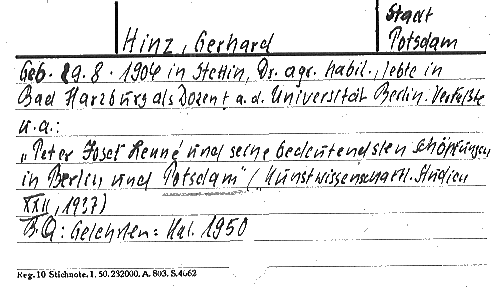 Stadt
Hinz, Gerhard Potsdam
Geb. 29.8.1904 in Stettin, Dr. agr. habil., lebte in
Bad Harzburg als Dozent a. d. Universität Berlin. Verfaßte
u.a.:
„Peter Josef Lenné und seine bedeutendsten Schöpfungen
in Berlin und Potsdam" (Kunstwissenschaftl. Studien
XXII, 1937)
B.Q: Gelehrten: Kal. 1950
Reg. 10 Stichnote. I. 50. 232000. A. 803. S. 4662